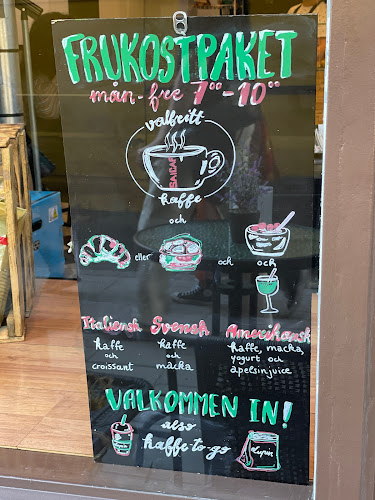 FRUKOSTPAKET
mån-fre 7°°-10°°
valfritt
BAICAF
kaffe
och
eller
och
och
Italiensk Svensk Amerikansk
kaffe
och
croissant
kaffe
och
macka
kaffe, macka,
yogurt och
apelsinjuice
VALKOMMEN IN!
also
kaffe-to-go